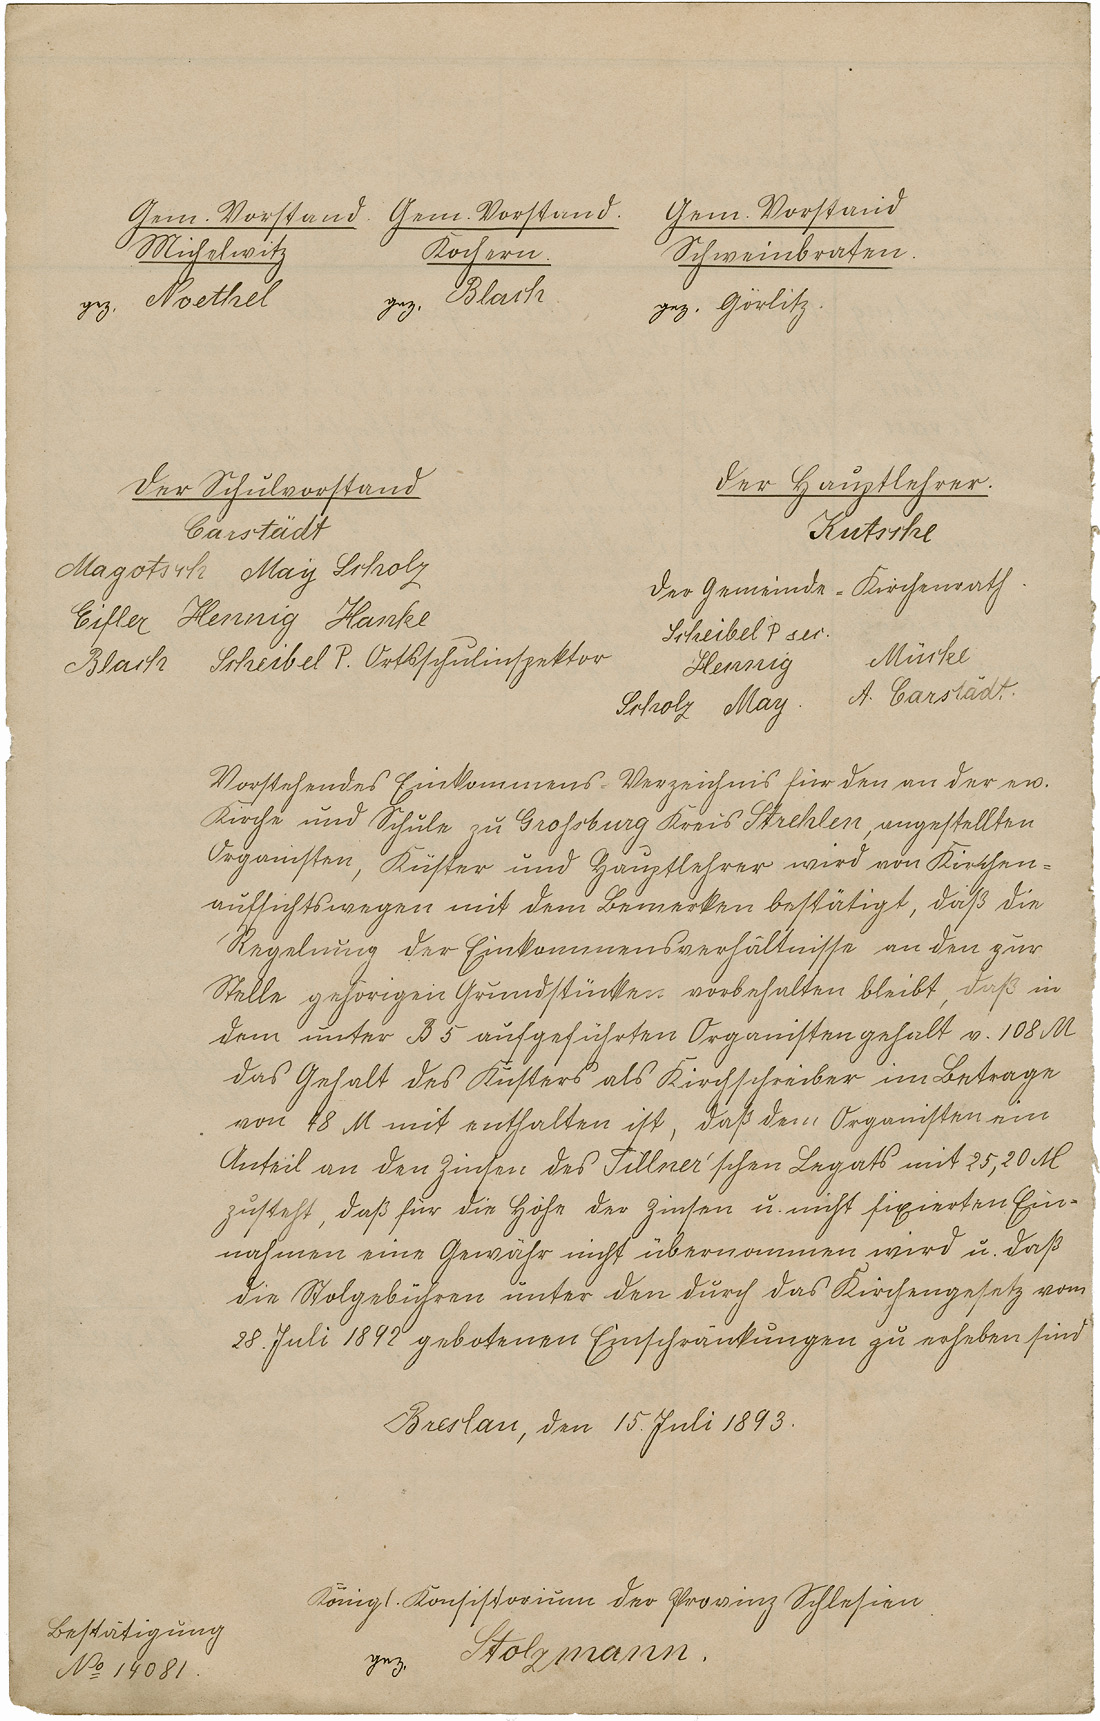 Gem. Vorstand. Gem. Vorstand. Gem. Vorstand
Michelwitz Kochern. Schweinbraten.
gez. Noethel gez. Blach gez. Görlitz.
Der Schulvorstand
Carstädt
Magotsch May Scholz
Eifler Hennig Hanke
Blach Scheibel P. Ortsschulinspektor
Der Hauptlehrer.
Kutsche
Der Gemeinde-Kirchenrath.
Scheibel P sec.
Hennig Müche
Scholz May. A. Carstädt.
Vorstehendes Einkommens-Verzeichnis für den an der ev.
Kirche und Schule zu Grossburg Kreis Strehlen, angestellten
Organisten, Küster und Hauptlehrer wird von Kirchen-
aufsichtswegen mit dem Bemerken bestätigt, daß die
Regelung der Einkommensverhältnisse an den zur
Stelle gehörigen Grundstücken vorbehalten bleibt, daß in
dem unter B 5 aufgeführten Organistengehalt v. 108 M
das Gehalt des Küsters als Kirchschreiber im Betrage
von 48 M mit enthalten ist, daß dem Organisten ein
Anteil an den Zinsen des Tillner'schen Legats mit 25,20 M
zusteht, daß für die Höhe der Zinsen u. nicht fixierten Ein-
nahmen eine Gewähr nicht übernommen wird u. daß
die Stolgebühren unter den durch das Kirchengesetz vom
28. Juli 1892 gebotenen Einschränkungen zu erheben sind
Breslau, den 15. Juli 1893.
Königl. Konsistorium der Provinz Schlesien
gez. Stolzmann.
Bestätigung
No 14081.